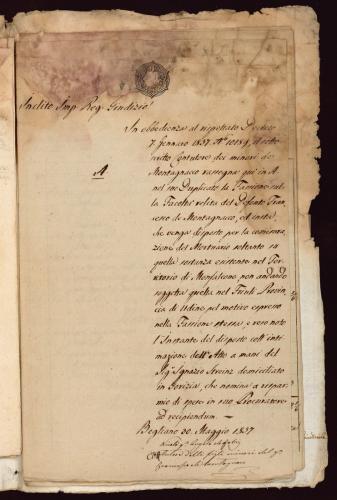 Inclito Imp. Reg. Giudizio!
In obbedienza al rispettato Decreto
7 Gennaro 1837 N.o 10189, il sotto
scritto Contutore dei minori de
Montagnacco rassegna qui in A
A
nel suo Duplicato la Fassione sul
la Facoltà relitta del Defonto Fran
cesco de Montagnacco, ed insta,
che venga disposto per la commisura
zione del Mortuario soltanto su
quella sostanza esistente nel Ter
ritorio di Monfalcone non andando
soggetta quella nel Friuli Provin
cia di Udine pel motivo espresso
nella Fassione stessa, e reso noto
l'Instante del disposto coll'inti
mazione dell'Atto a mani del
Sig.r Ignazio domiciliato
in Gorizia, che nomina a rispar
mio di spese in suo Procuratore
ad recipiendum.
Begliano 30. Maggio 1837
delli figli minori del q.m
Francesco de Montagnacco